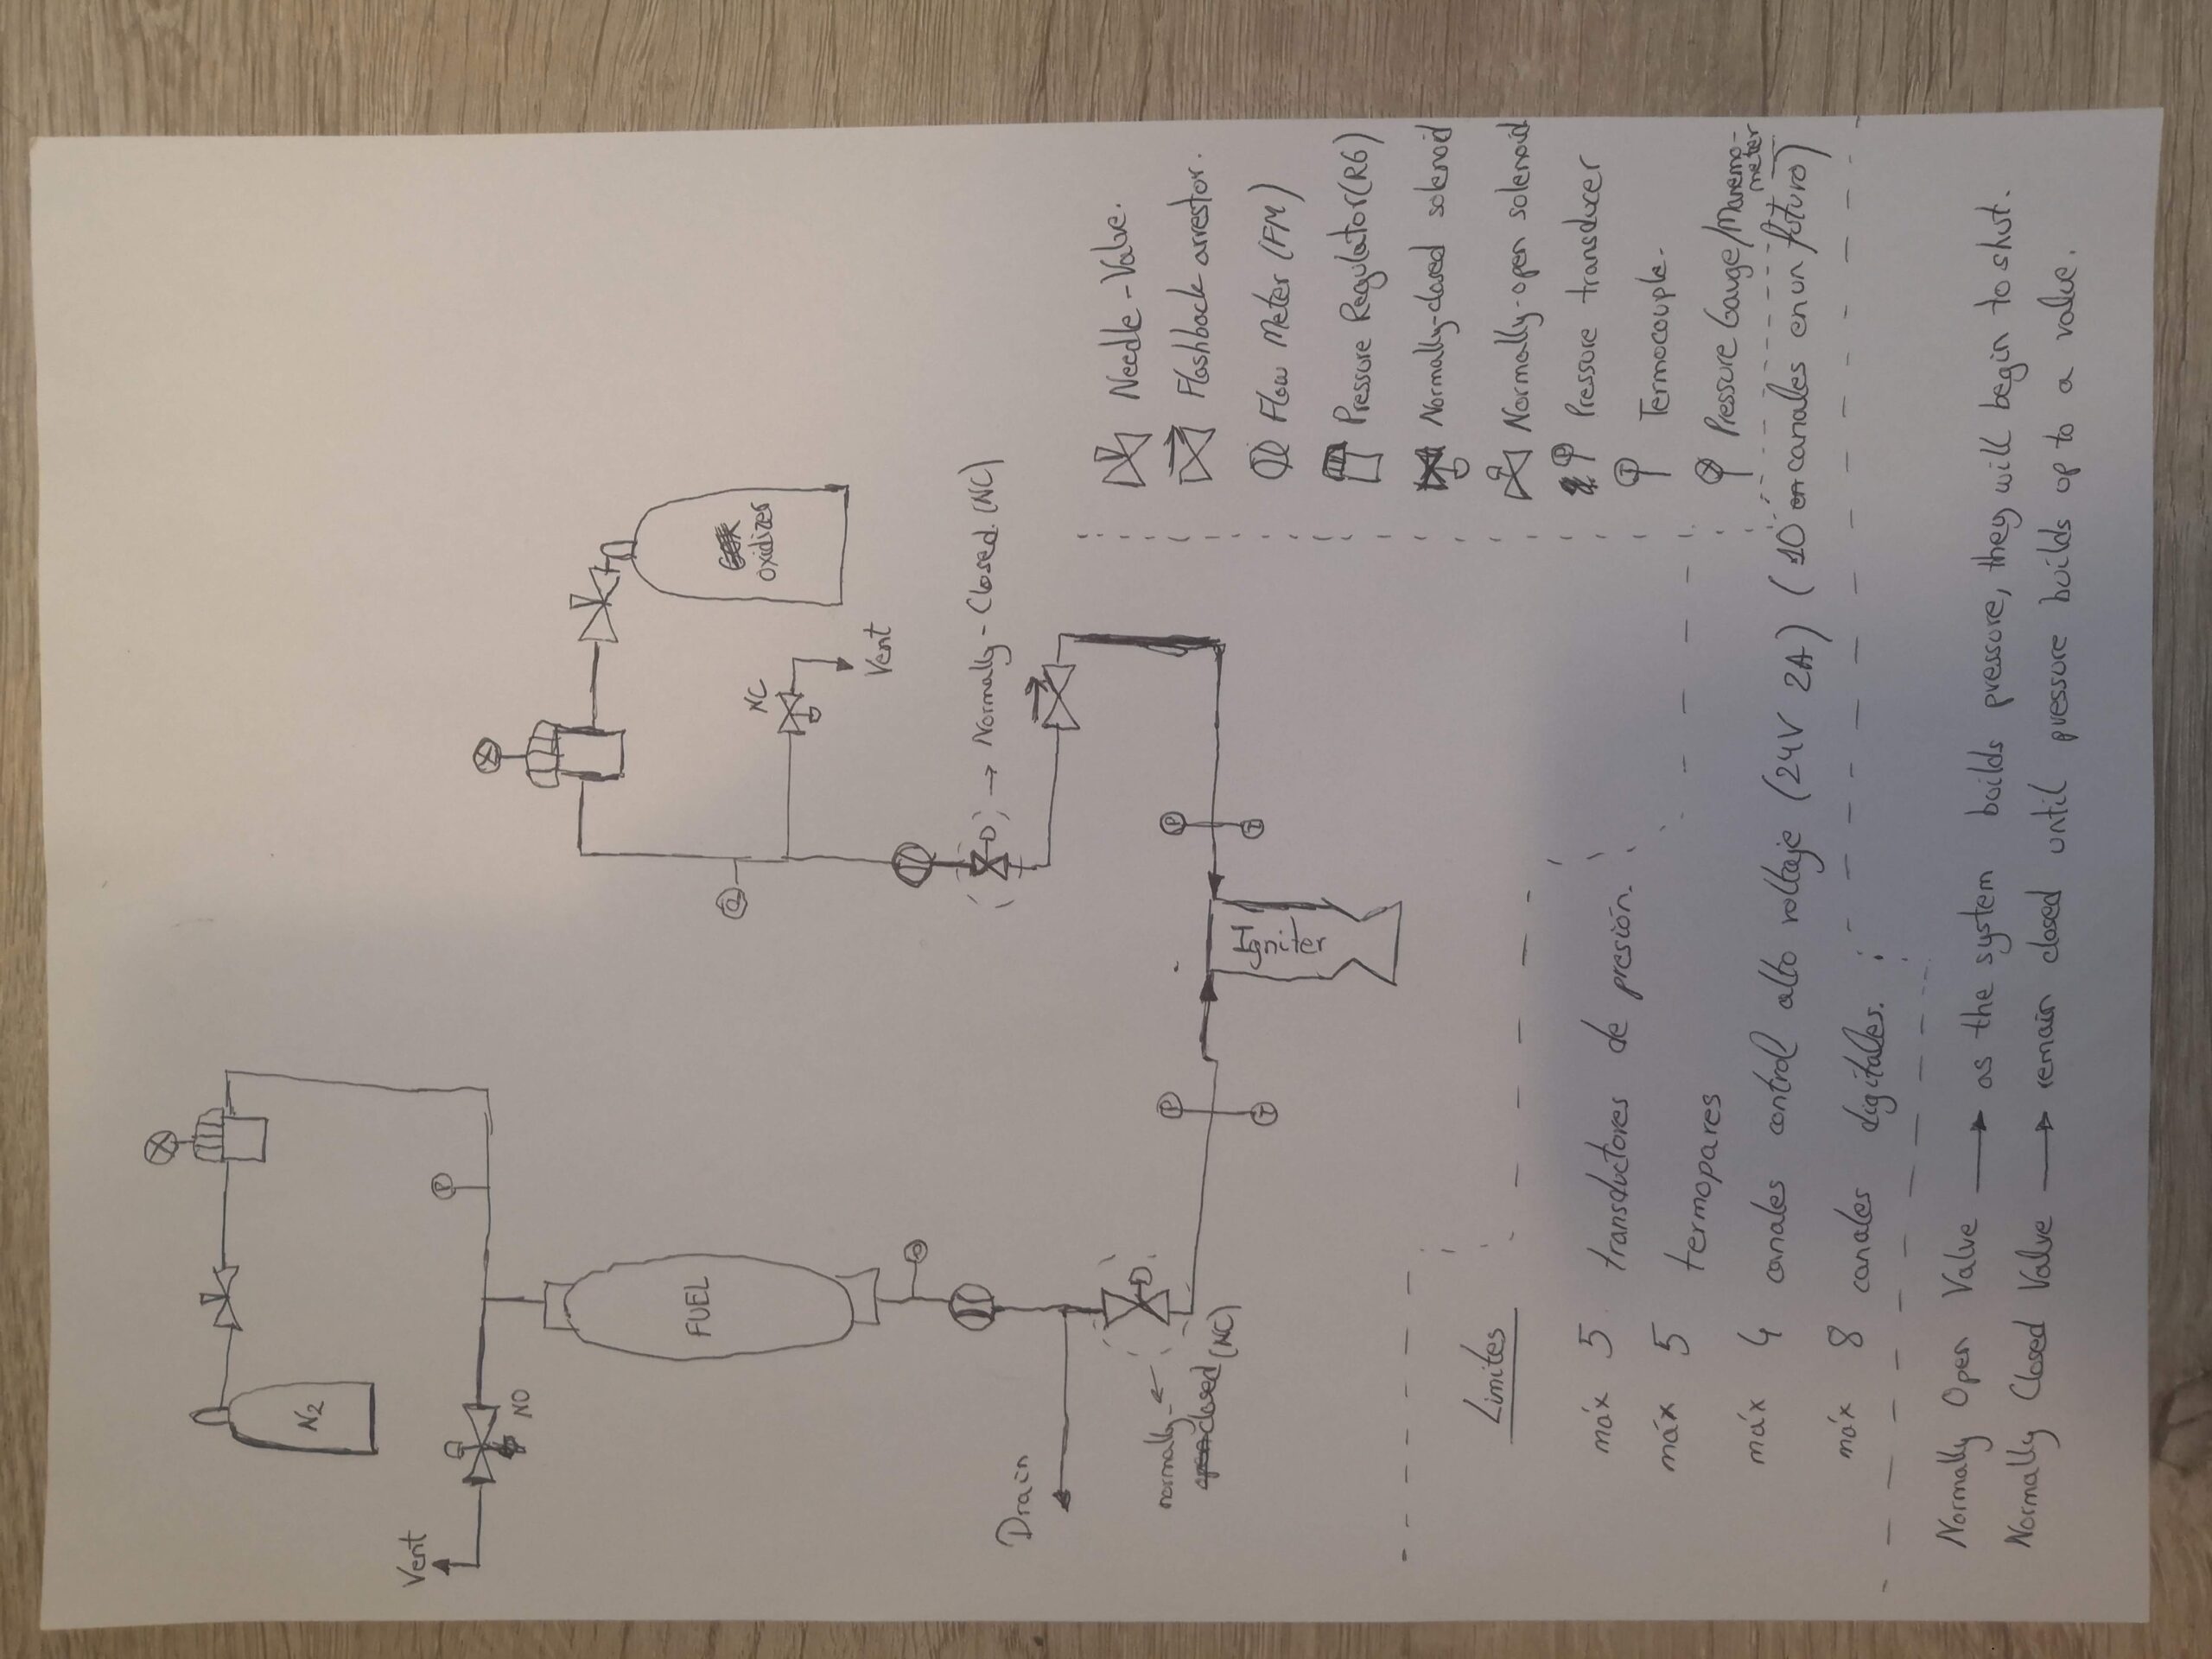 N2
Vent
NO
P
FUEL
P
Drain
normally
closed (NC)
P
T
oxidizer
NC
Vent
P
→ Normally-Closed. (NC)
P
T
Igniter
Needle-Valve.
Flashback arrestor.
Flow Meter (FM)
Pressure Regulator (RG)
Normally-closed solenoid
Normally-open solenoid
P Pressure transducer
T Termocouple.
Pressure Gauge/Manemo-
meter
Limites
máx 5 transductores de presión.
máx 5 termopares
máx 4 canales control alto voltaje (24V 2A) (10 canales en un futuro)
máx 8 canales digitales.
Normally Open Valve → as the system builds pressure, they will begin to shut.
Normally Closed Valve → remain closed until pressure builds up to a value.